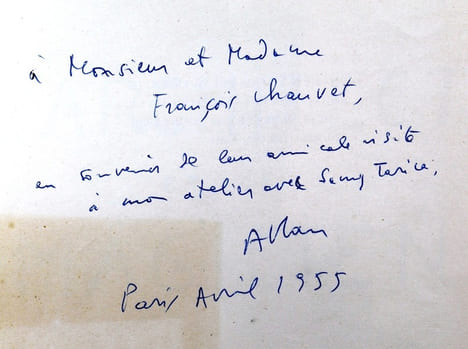 à Monsieur et Madame
François Chauvet,
en souvenir de leur amicale visite
à mon atelier avec Samy Tarica,
Atlan
Paris Avril 1955